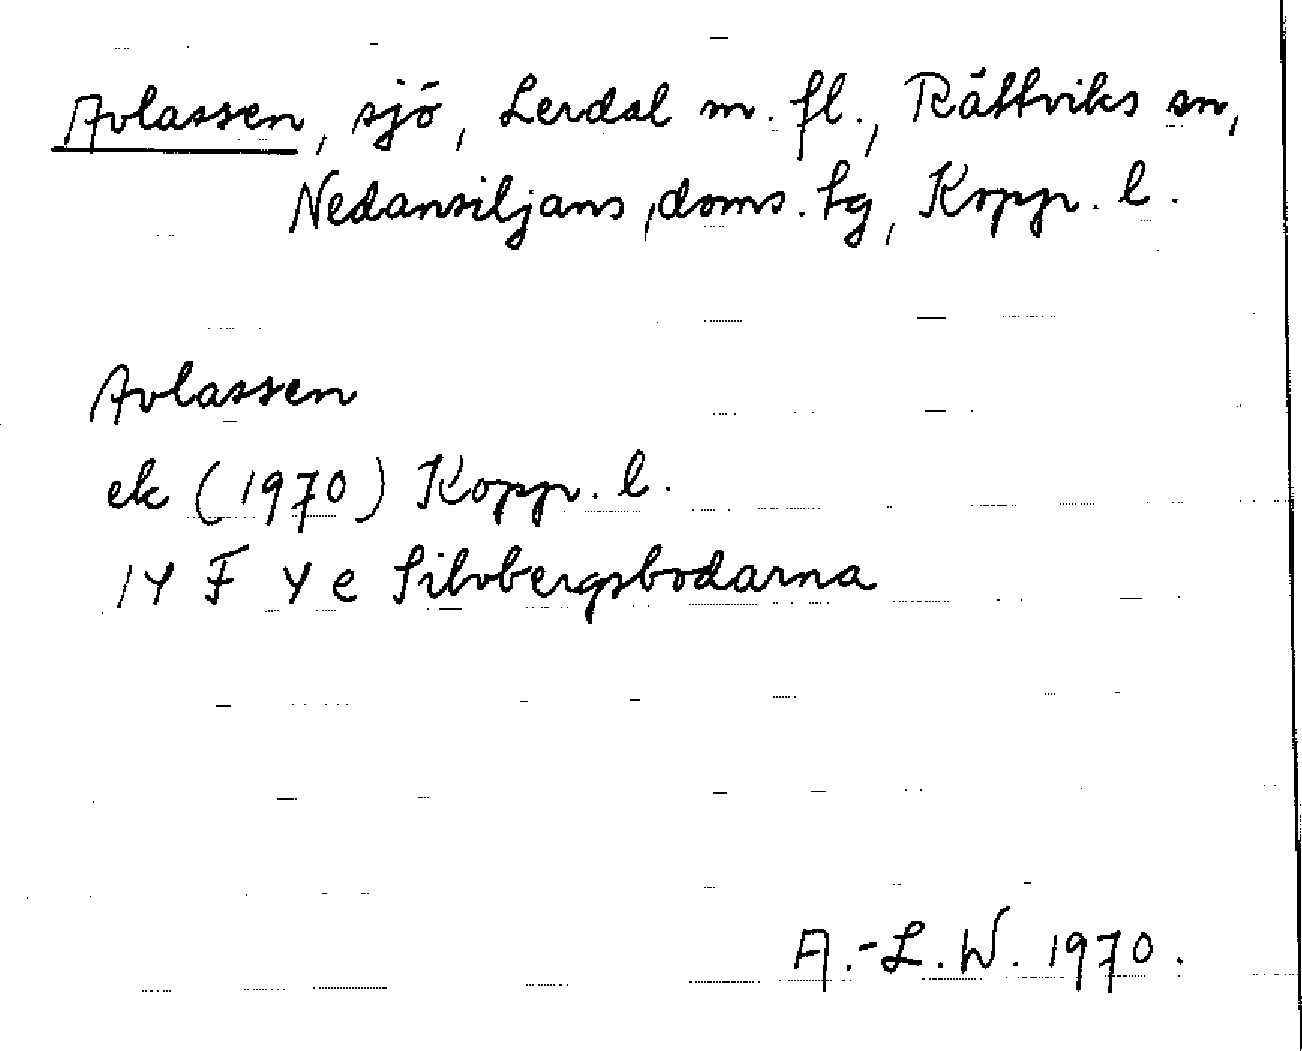 Avlassen, sjö, Lerdal m. fl., Rättviks sn,
Nedansiljans, doms. tg, Kopp. l.
Avlassen
ek (1970) Kopp. l.
14 F 4 e Silvbergsbodarna
A.-L. W. 1970.